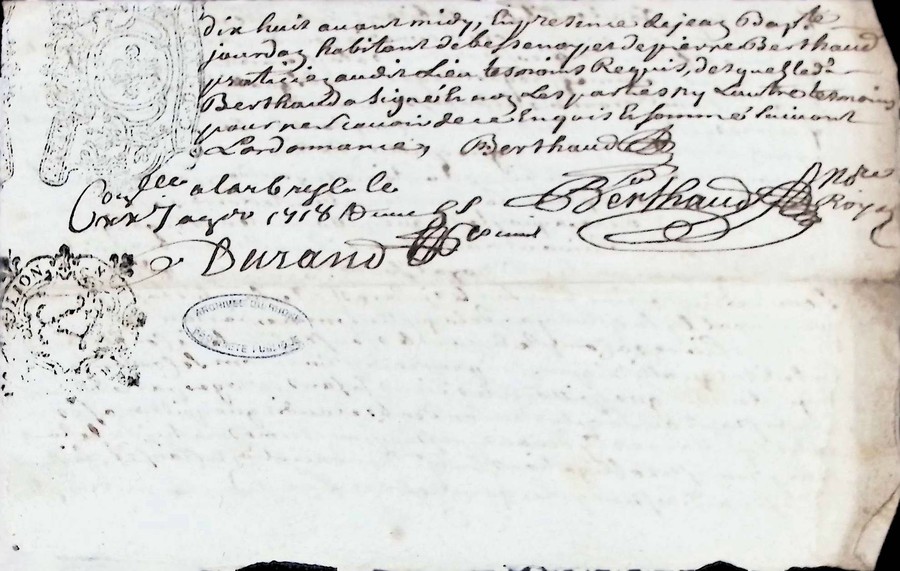 dix huit avant midy, En presence de jean Bapte
jourdan habitant de bessenay et de pierre Berthaud
praticien audit Lieu tesmoins Requis, desquelz led.
Berthaud a signé Et non Les parties ny Lautre tesmoins
pour ne scavoir de ce Enquis Et sommé suivant
Lordonnance, Berthaud
Conllé a larbresle le
xx Janvr 1718
Berthaud Nore
Royal
Durand
LION
ARCHIVES DU RHONE